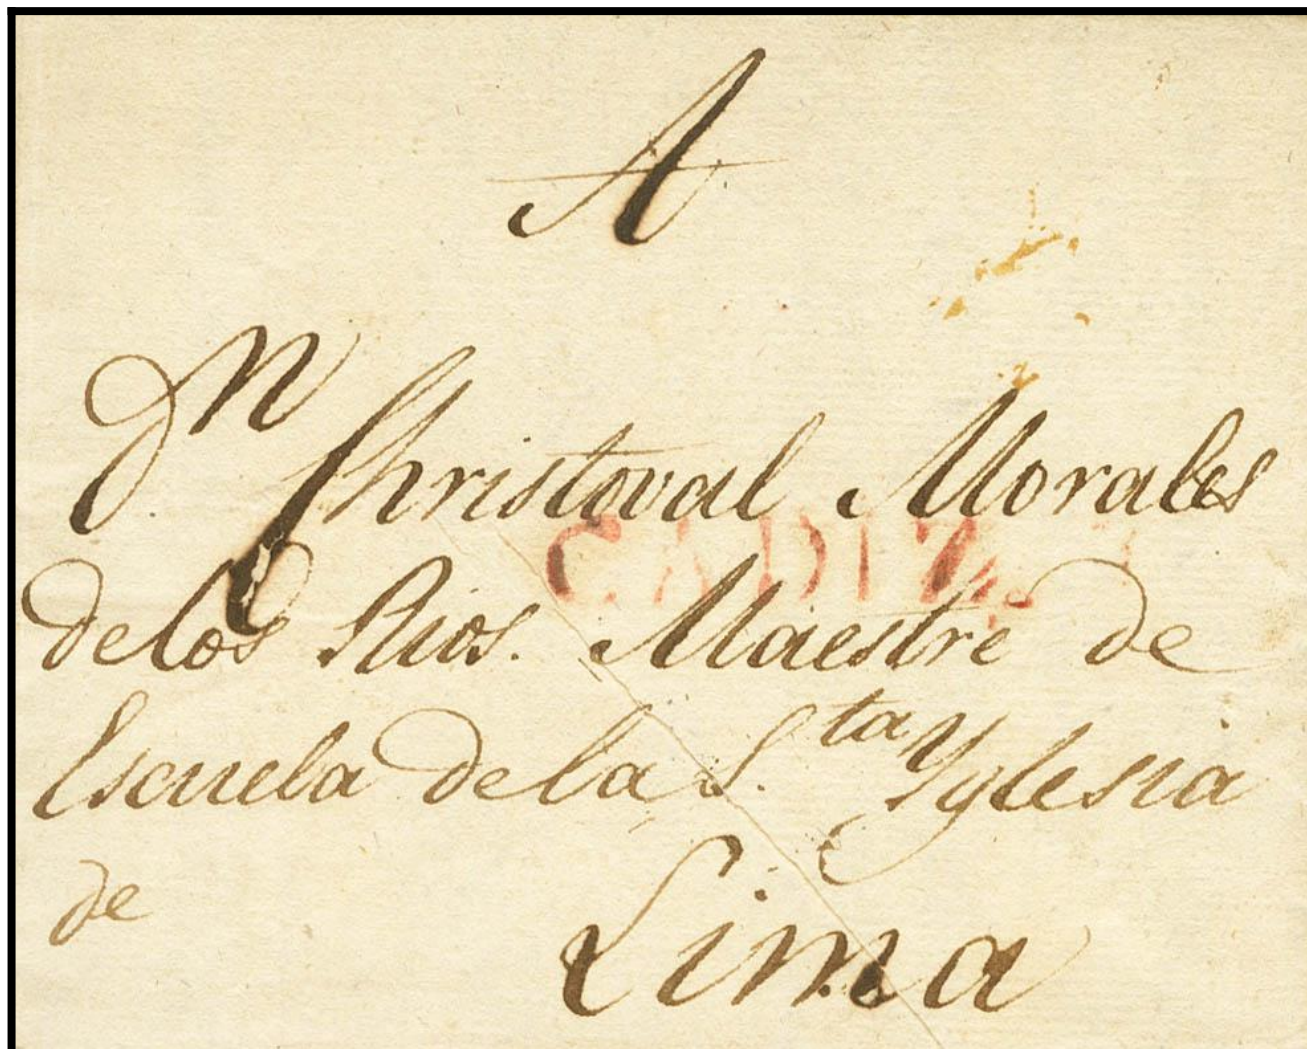 A
Dn. Christoval Morales
CADIZ
de los Rios. Maestre de
Escuela de la S.ta Yglesia
de Lima